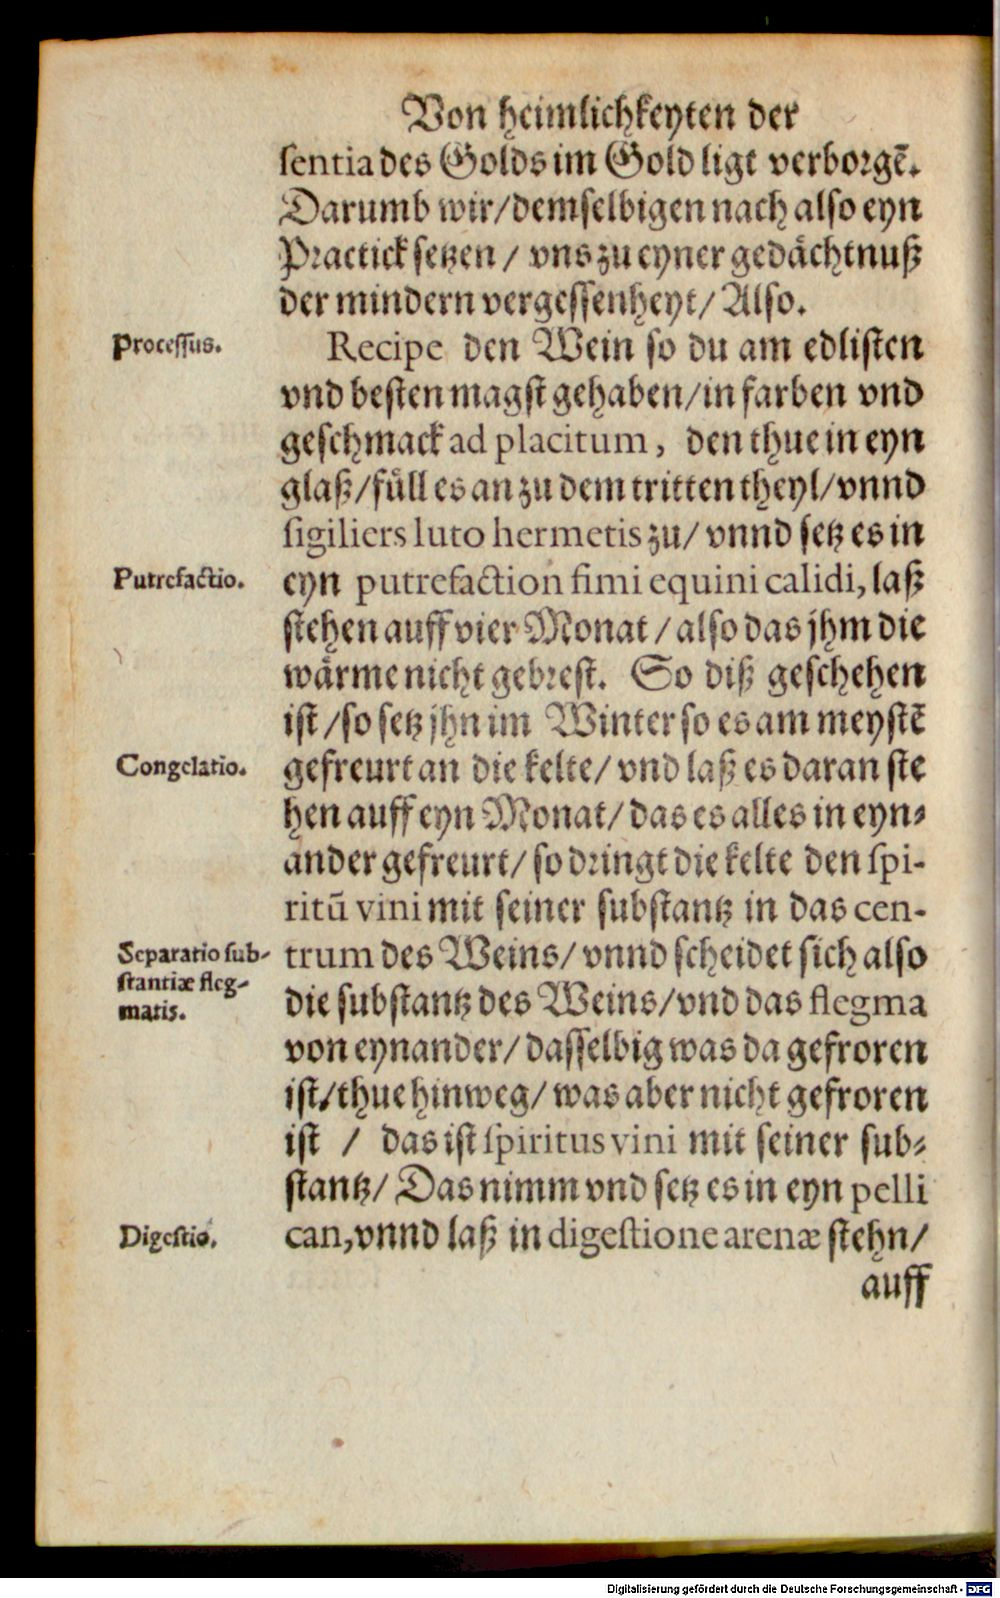 Von heimlichkeyten der
sentia des Golds im Gold ligt verborgẽ.
Darumb wir/demselbigen nach also eyn
Practick setzen / vns zu eyner gedächtnuß
der mindern vergessenheyt/ Also.
Processus.
Recipe den Wein so du am edlisten
vnd besten magst gehaben/in farben vnd
geschmack ad placitum, den thue in eyn
glaß/füll es an zu dem tritten theyl/vnnd
sigiliers luto hermetis zu/ vnnd setz es in
Putrefactio.
eyn putrefaction fimi equini calidi, laß
stehen auff vier Monat / also das jhm die
wärme nicht gebrest. So diß geschehen
ist /so setz jhn im Winter so es am meystẽ
Congelatio.
gefreurt an die kelte/ vnd laß es daran ste
hen auff eyn Monat/ das es alles in eyn⸗
ander gefreurt/ so dringt die kelte den spi-
ritũ vini mit seiner substantz in das cen-
Separatio sub-
stantiæ fleg-
matis.
trum des Weins/ vnnd scheidet sich also
die substantz des Weins/vnd das flegma
von eynander/ dasselbig was da gefroren
ist/thue hinweg/ was aber nicht gefroren
ist / das ist spiritus vini mit seiner sub⸗
stantz/ Das nimm vnd setz es in eyn pelli
Digestio.
can,vnnd laß in digestione arenæ stehn/
auff
Digitalisierung gefördert durch die Deutsche Forschungsgemeinschaft - DFG